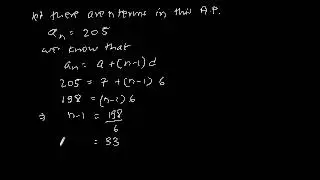 let there are n terms in this A.P.
aₙ = 205
we know that
aₙ = a + (n-1) d
205 = 7 + (n-1) 6
198 = (n-1) 6
⇒ n-1 = 198/6
= 33